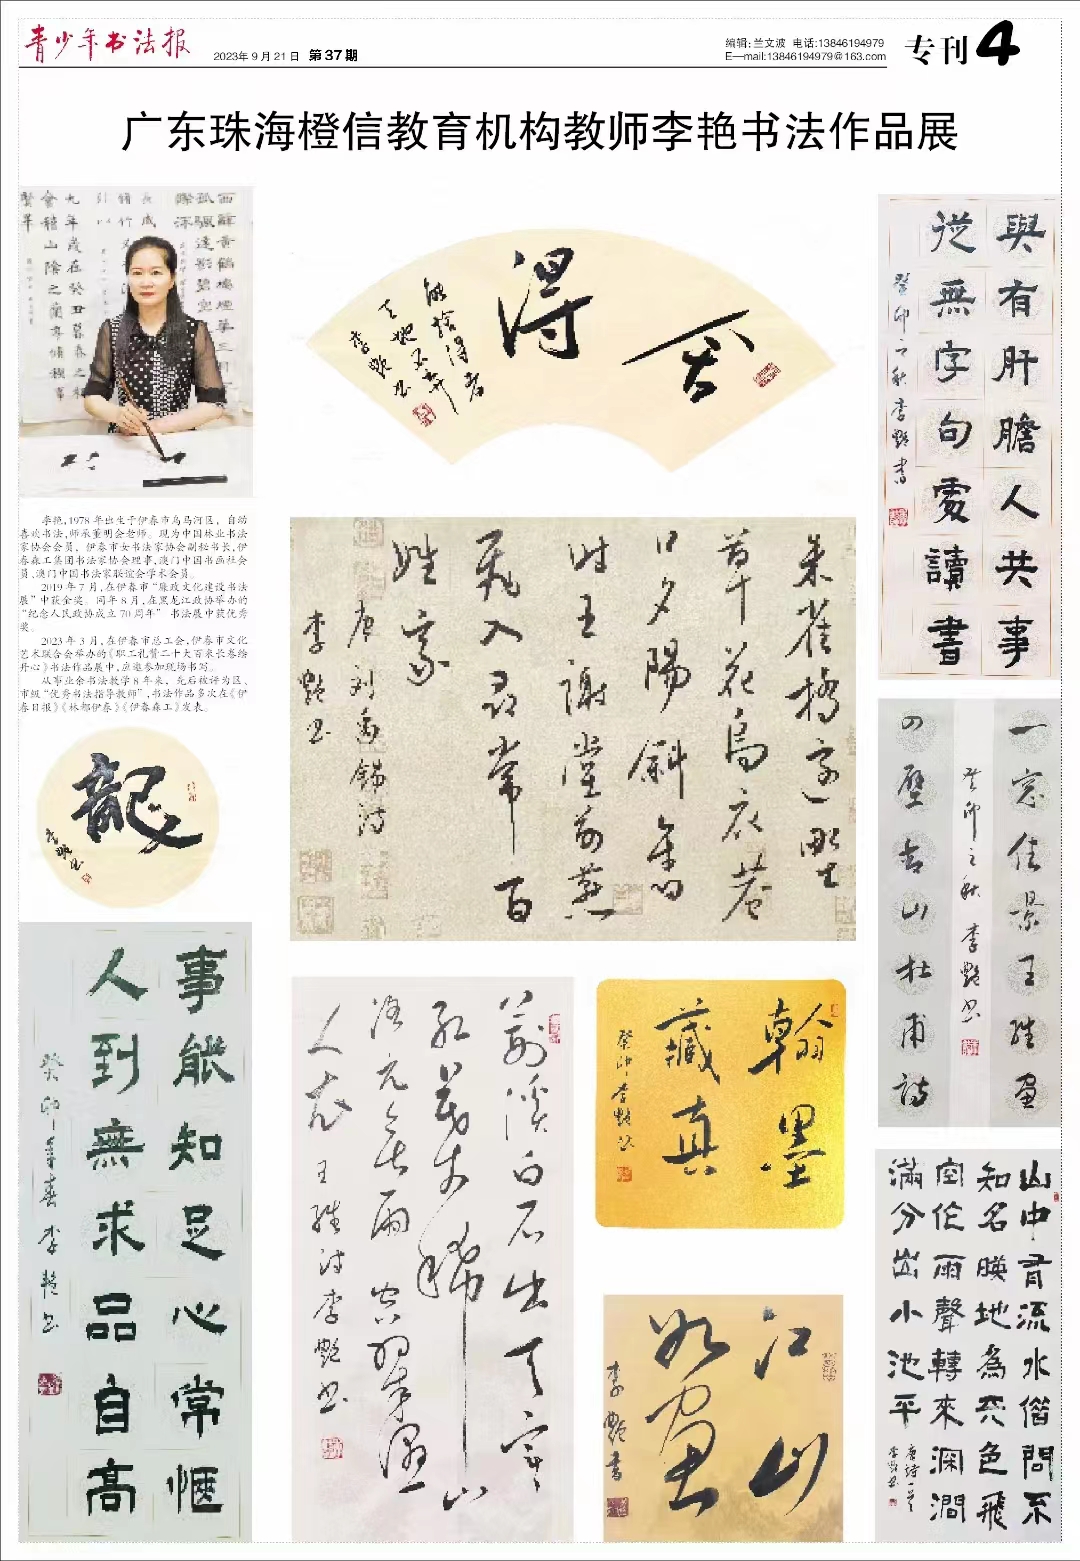 青少年书法报
2023年9月21日 第37期
编辑:兰文波 电话:13846194979
E—mail:13846194979@163.com
专刊 4
广东珠海橙信教育机构教师李艳书法作品展
李艳,1978年出生于伊春市乌马河区。自幼
喜欢书法,师承董明会老师。现为中国林业书法
家协会会员、伊春市女书法家协会副秘书长,伊
春森工集团书法家协会理事,澳门中国书画社会
员,澳门中国书法家联谊会学术会员。
2019年7月,在伊春市“廉政文化建设书法
展”中获金奖。同年8月,在黑龙江政协举办的
“纪念人民政协成立70周年” 书法展中获优秀
奖。
2023年3月,在伊春市总工会,伊春市文化
艺术联合会举办的《职工礼赞二十大百米长卷绘
丹心》书法作品展中,应邀参加现场书写。
从事业余书法教学8年来,先后被评为区、
市级“优秀书法指导教师”,书法作品多次在《伊
春日报》《林都伊春》《伊春森工》发表。
舍得
能捨得者
天地不弃
李艷书
與有肝膽人共事
從無字句處讀書
癸卯之秋李艷書
朱雀橋邊野
草花烏衣巷
口夕陽斜舊
时王謝堂前燕
飛入尋常百
姓家
唐刘禹錫诗
李艷书
龍
李艷书
一窓佳景王維画
四壁古山杜甫詩
癸卯之秋李艷书
事能知足心常愜
人到無求品自高
癸卯年春李艷书
荊溪白石出天寒
红葉稀山
路元无雨空翠湿
人衣王維诗李艷书
翰墨
藏真
癸卯李艷书
江山
如画
李艷書
山中有流水借問不
知名映地為天色飛
空作雨聲轉來深澗
滿分出小池平
唐诗一首
李艷书